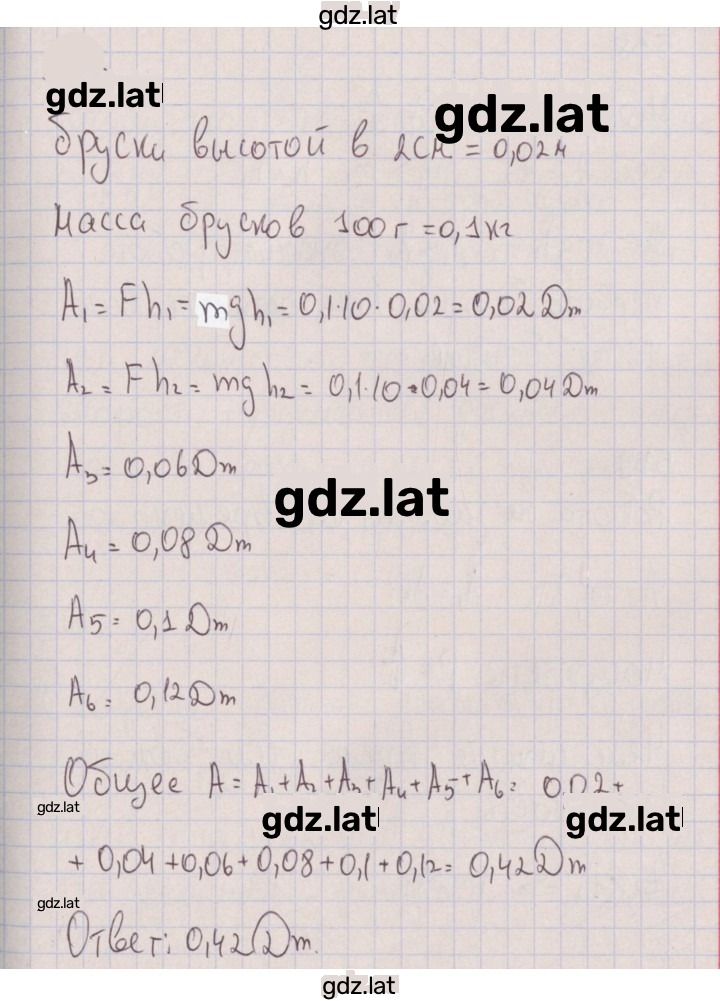 gdz.lat
gdz.lat
gdz.lat
бруски высотой в 2см = 0,02м
масса брусков 100г = 0,1кг
A₁ = Fh₁ = mgh₁ = 0,1·10·0,02 = 0,02 Dm
A₂ = Fh₂ = mgh₂ = 0,1·10·0,04 = 0,04 Dm
A₃ = 0,06 Dm
gdz.lat
A₄ = 0,08 Dm
A₅ = 0,1 Dm
A₆ = 0,12 Dm
Общее A = A₁ + A₂ + A₃ + A₄ + A₅ + A₆ = 0,02 +
gdz.lat
gdz.lat
gdz.lat
+ 0,04 + 0,06 + 0,08 + 0,1 + 0,12 = 0,42 Dm
gdz.lat
Ответ: 0,42 Dm.
gdz.lat